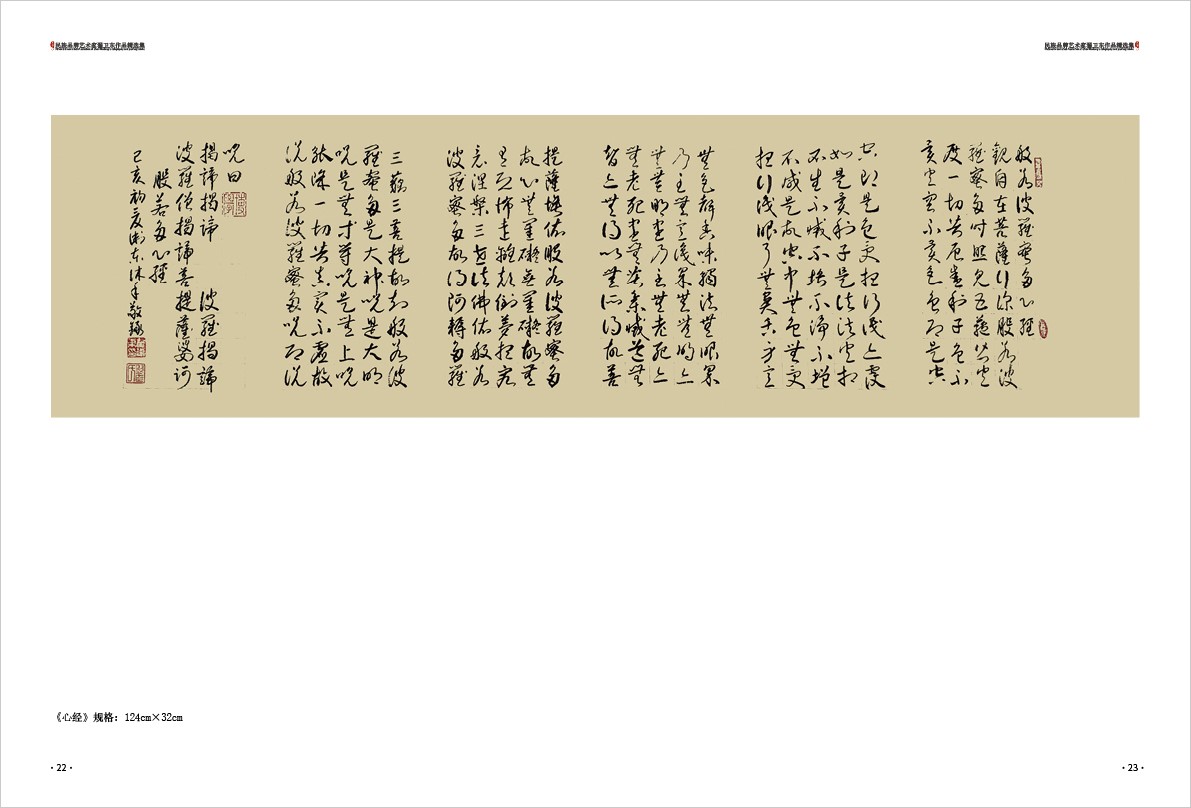 民族品牌艺术家卫东作品精选集
民族品牌艺术家卫东作品精选集
般若波羅蜜多心經
觀自在菩薩行深般若波
羅蜜多时照見五蘊皆空
度一切苦厄舍利子色不
异空空不异色色即是空
空即是色受想行识亦復
如是舍利子是法法空相
不生不滅不垢不净不增
不减是故空中無色無受
想行识眼耳無鼻舌身意
無色聲香味觸法無眼界
乃至無意识界無無明亦
無無明盡乃至無老死亦
無老死盡無苦集滅道無
智亦無得以無所得故菩
提薩埵依般若波羅蜜多
故心無罣礙無罣礙故無
有恐怖遠離顛倒夢想究
竟涅槃三世诸佛依般若
波羅蜜多故得阿耨多羅
三藐三菩提故知般若波
羅蜜多是大神咒是大明
咒是無等等咒是無上咒
能除一切苦真實不虛故
说般若波羅蜜多咒即说
咒曰
揭諦揭諦 波羅揭諦
波羅僧揭諦菩提薩婆訶
般若多心經
己亥初夏衛東沐手敬録
《心经》规格：124cm×32cm
·22·
·23·